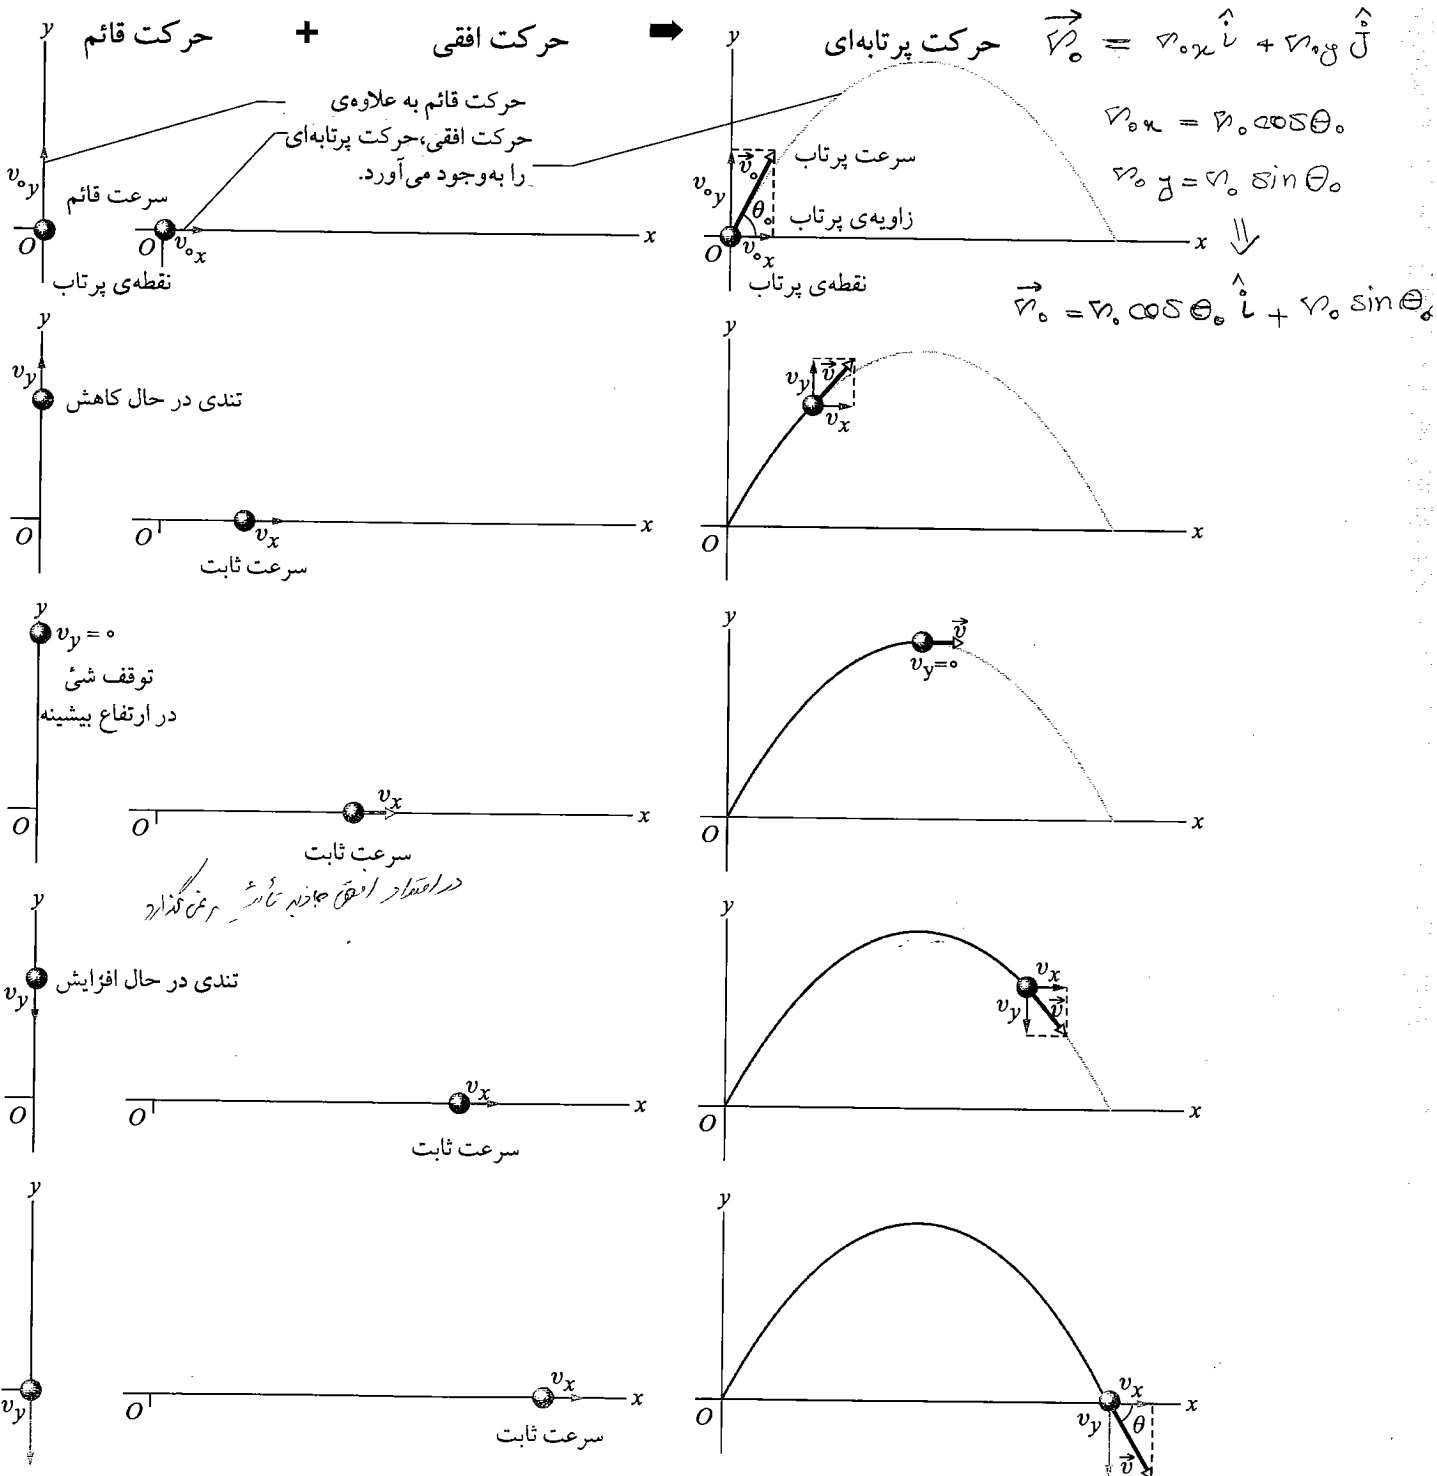 حرکت قائم + حرکت افقی ➡ حرکت پرتابه‌ای
v⃗₀ = v₀ₓ î + v₀y ĵ
v₀ₓ = v₀ cosθ₀
v₀y = v₀ sinθ₀
⇓
v⃗₀ = v₀ cosθ₀ î + v₀ sinθ₀
y
حرکت قائم به علاوه‌ی
حرکت افقی،حرکت پرتابه‌ای
را به‌وجود می‌آورد.
v₀y
سرعت قائم
O
نقطه‌ی پرتاب
O v₀x x
y
سرعت پرتاب
v₀y v⃗₀
θ₀ زاویه‌ی پرتاب
O v₀x x
نقطه‌ی پرتاب
y
vy
تندی در حال کاهش
O
O vx x
سرعت ثابت
y
vy v⃗
vx
O x
y
vy = ۰
توقف شئ
در ارتفاع بیشینه
O
vx
O x
سرعت ثابت
در امتداد افق جاذبه تأثیر نمی‌گذارد
y
v⃗
vy=۰
O x
y
تندی در حال افزایش
vy
O
vx
O x
سرعت ثابت
y
vx
vy v⃗
O x
y
vy
vx
O x
سرعت ثابت
y
vx
O x
vy θ
v⃗